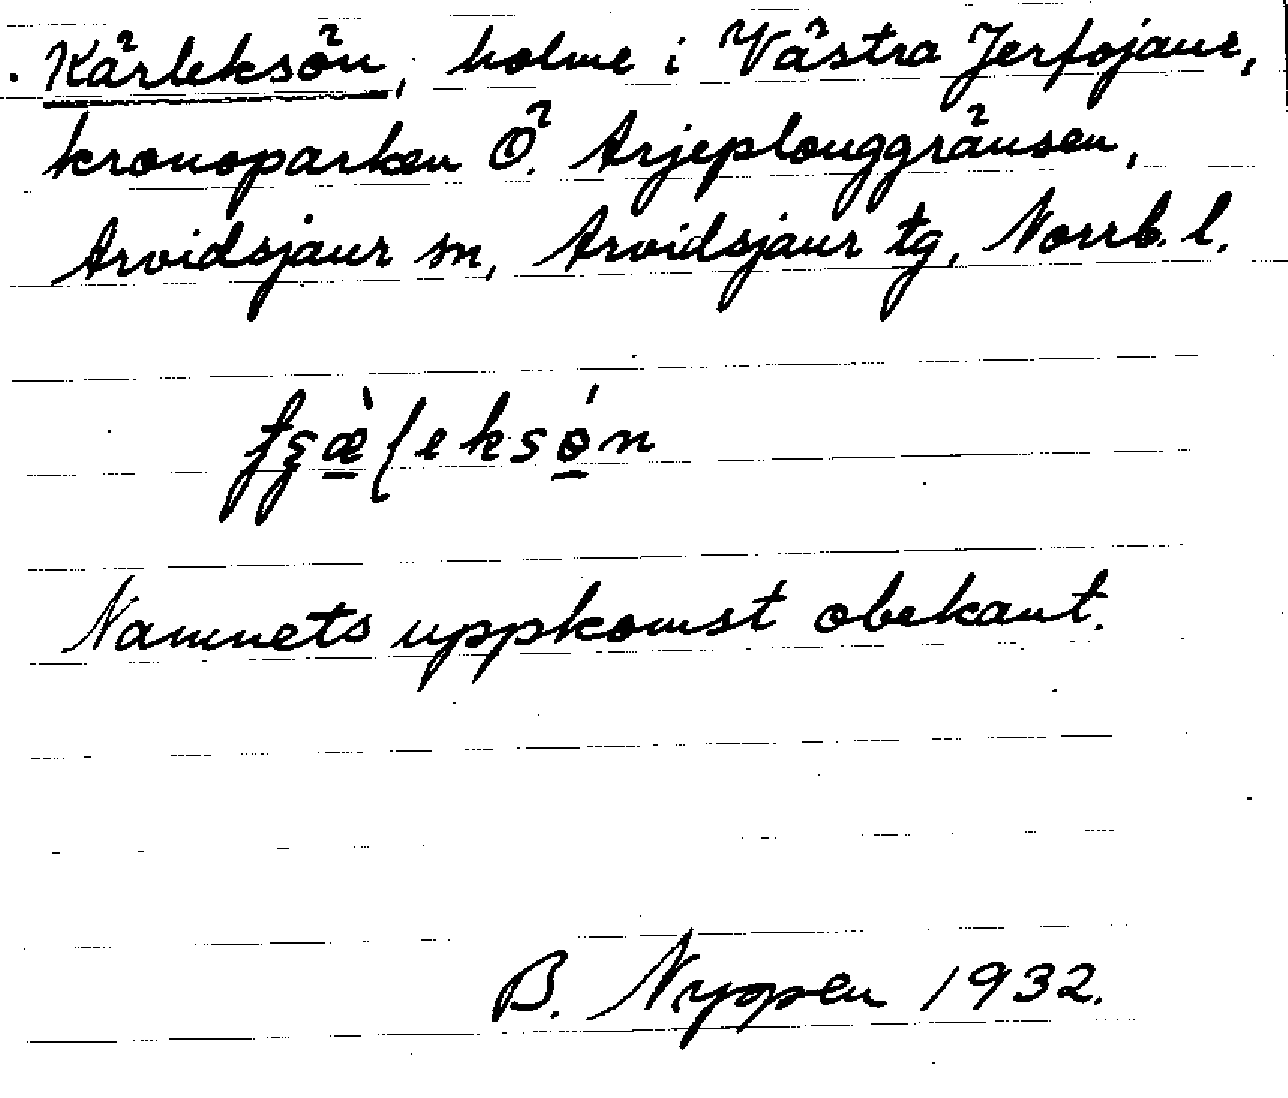 Kärleksön, holme i Västra Jerfojaur,
kronoparken Ö. Arjeplouggränsen,
Arvidsjaur sn, Arvidsjaur tg, Norrb. l.
Namnets uppkomst obekant.
B. Nyppen 1932.